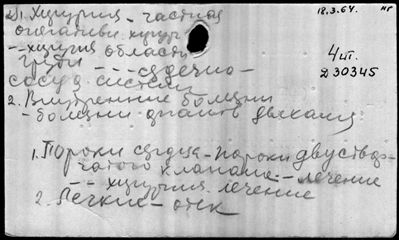 1. Хирургия - частная
18.3.64. нг
оперативн. хирург.
-- хирургия области
груди --- сердечно-
4 т.
сосуд системы
Д 30345
2. Внутренние болезни
- болезни органов дыхания
1. Пороки сердца - пороки двуствор-
чатого клапана - лечение
-- хирургия лечение
2. Легкие - отек